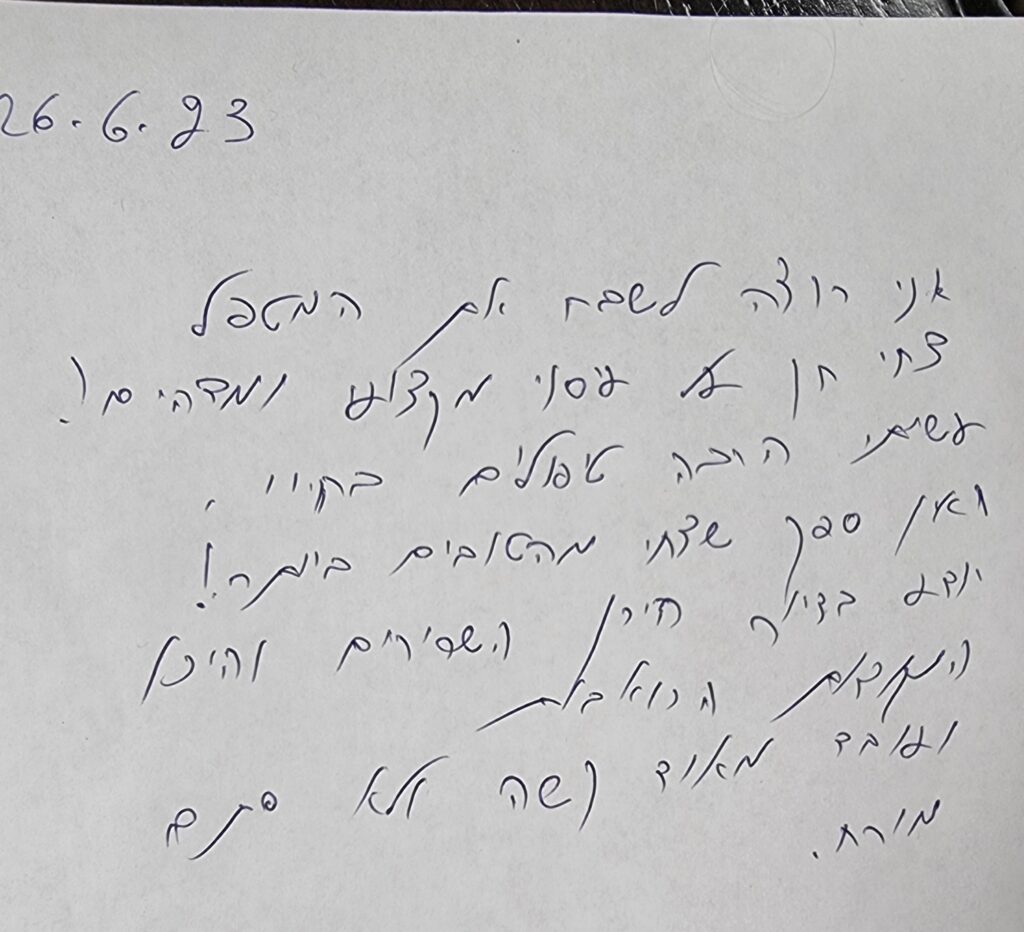 26.6.23
אני רוצה לשבח את המטפל
צחי חן על עיסוי מקצועי ומדהים!
עשיתי הרבה טיפולים בחיי,
ואין ספק שצחי מהטובים ביותר!
יודע בדיוק היכן השרירים והיכן
הנקודות הכואבות
ועובד מאוד קשה ולא סתם
מורח.